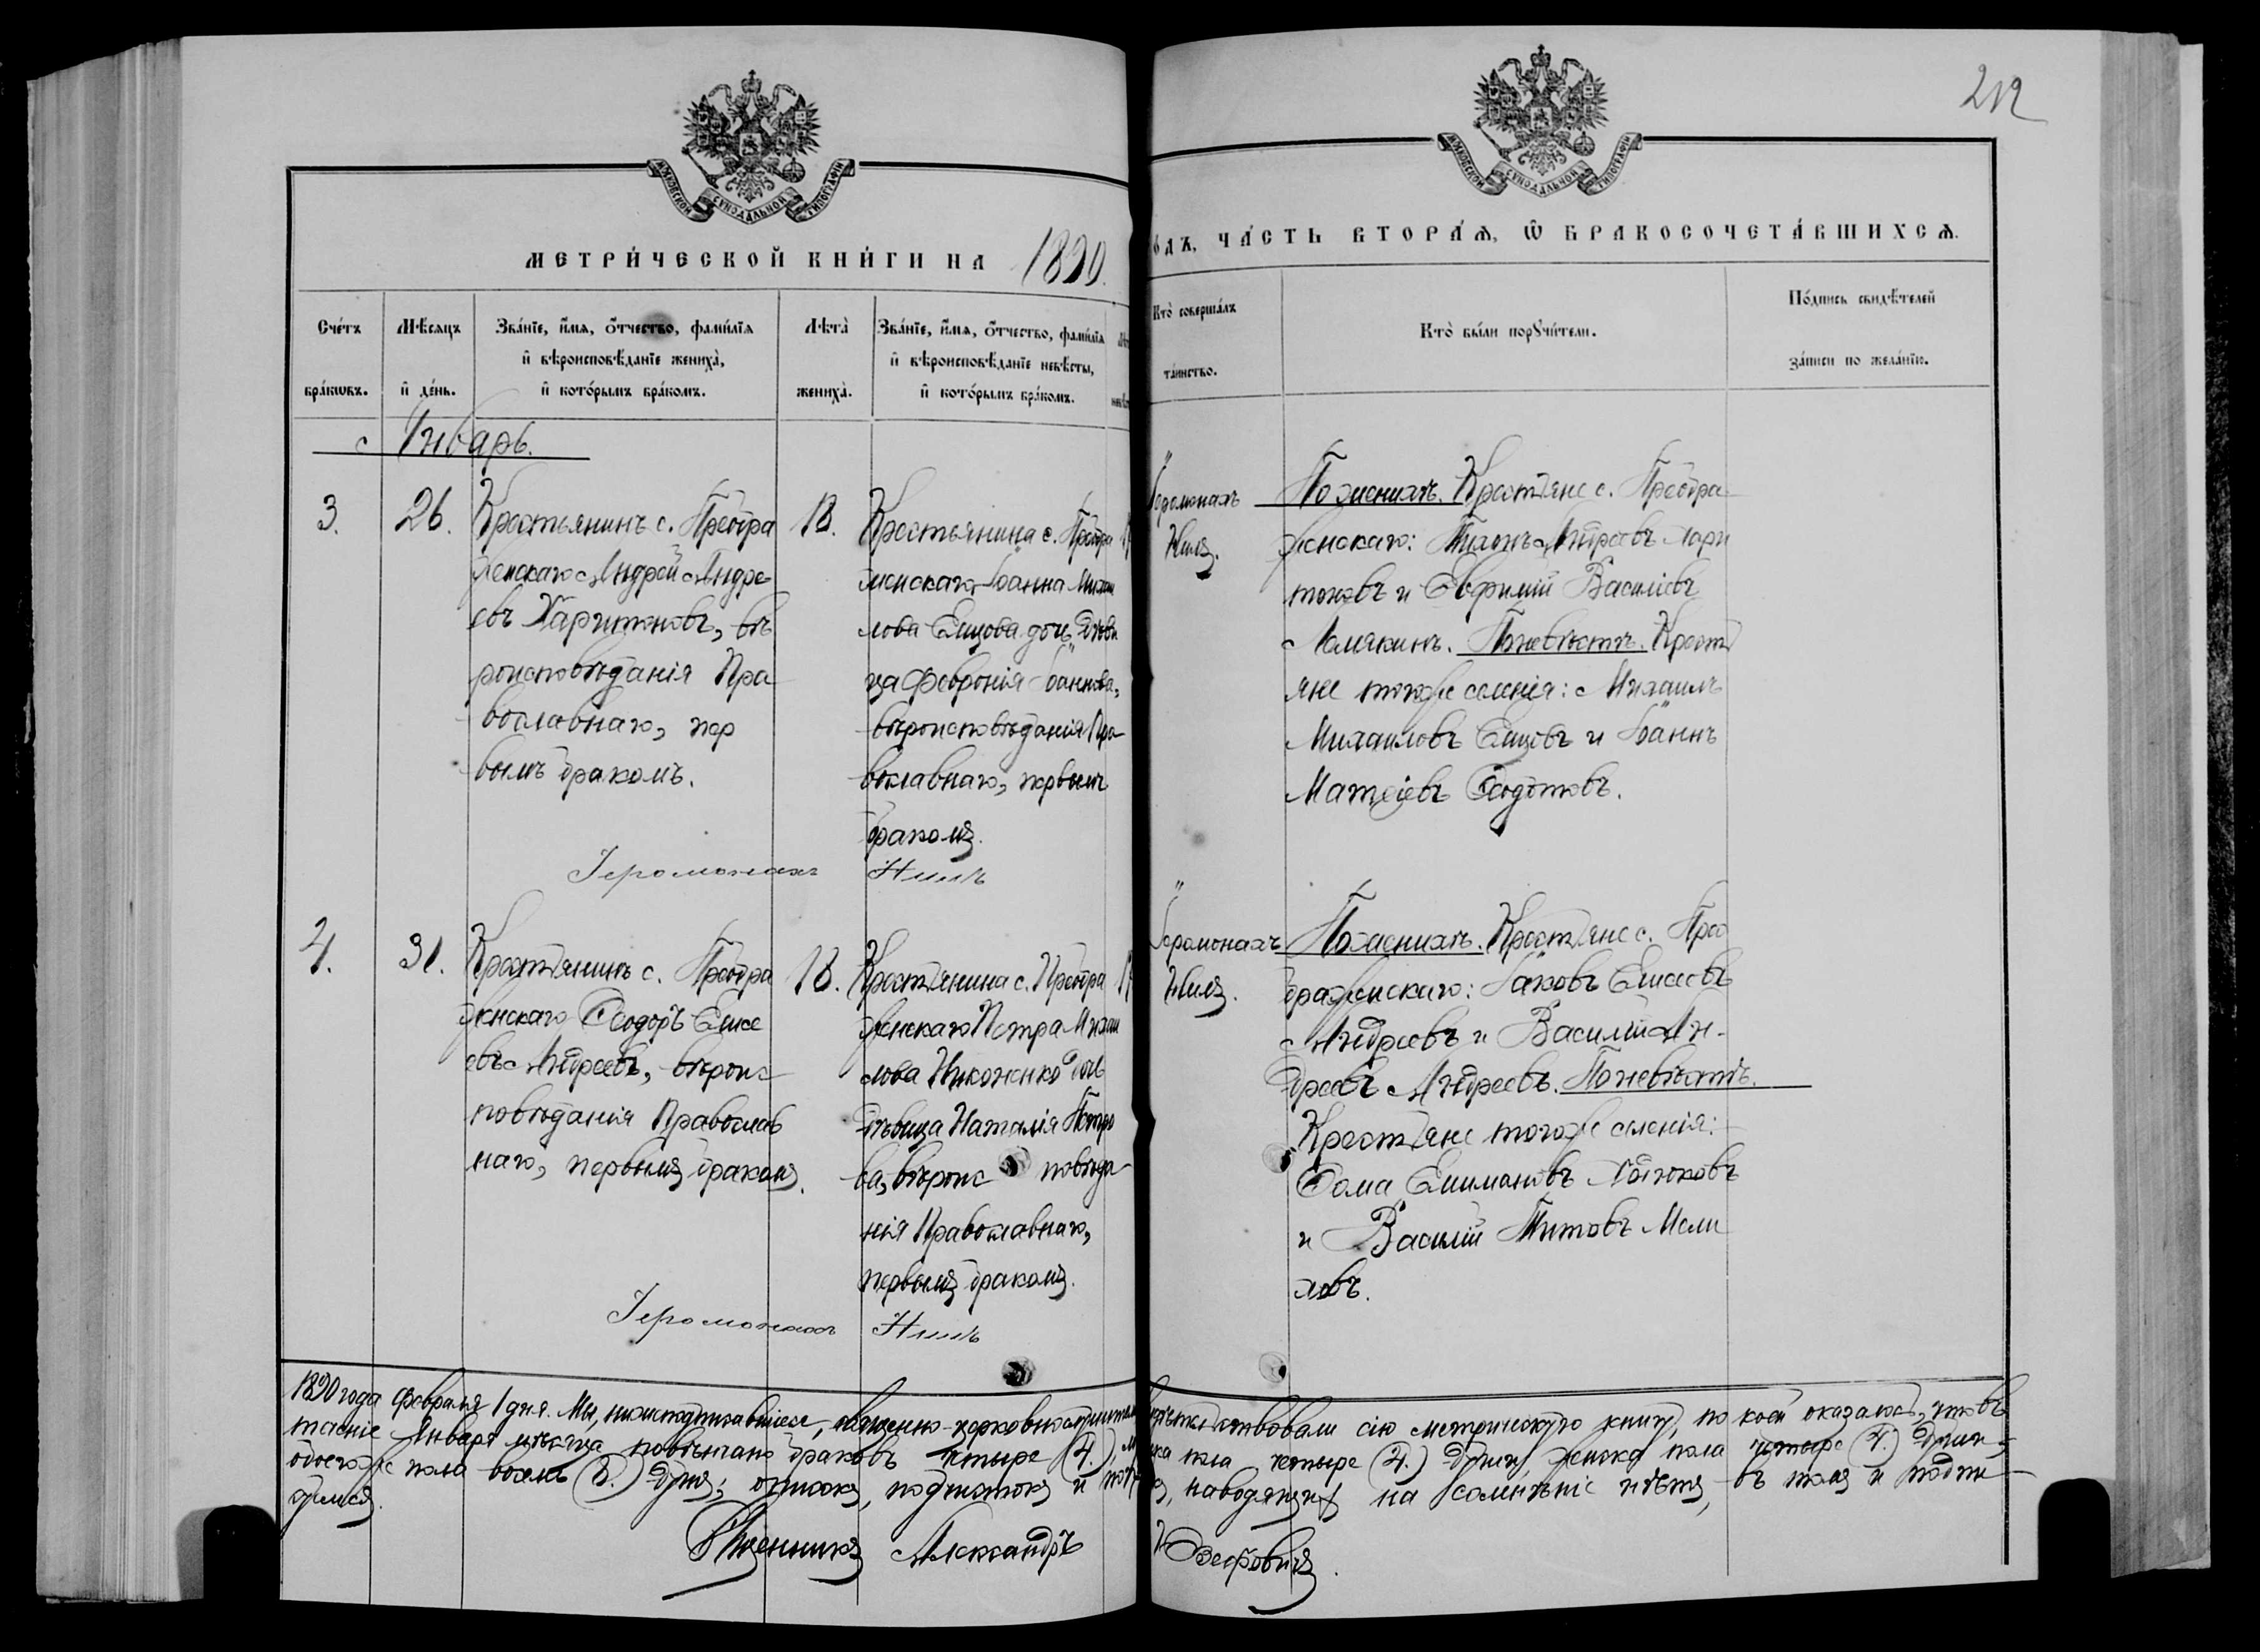 212
МОСКОВСКОЙ СѴНОДАЛЬНОЙ ТИПОГРАФІИ
МОСКОВСКОЙ СѴНОДАЛЬНОЙ ТИПОГРАФІИ
МЕТРИ́ЧЕСКОЙ КНИ́ГИ НА 1890
о́дъ, ЧА́СТЬ ВТОРА́Ѧ, Ѽ БРАКОСОЧЕТА́ВШИХСѦ.
Сче́тъ
бра́кѡвъ.
Мѣ́сѧцъ
и҆ де́нь.
Зва́нїе, и҆́мѧ, ѻ҆́тчество, фами́лїѧ
и҆ вѣроисповѣ́данїе жениха̀,
и҆ кото́рымъ бра́комъ.
Лѣта̀
жениха̀.
Зва́нїе, и҆́мѧ, ѻ҆́тчество, фами́лїѧ
и҆ вѣроисповѣ́данїе невѣ́сты,
и҆ кото́рымъ бра́комъ.
Кто̀ соверша́лъ
та́инство.
Кто̀ бы́ли порꙋчи́тели.
По́дпись свидѣ́телей
за́писи по жела́нїю.
Январь.
3.
26.
Крестьянинъ с. Преобра
женскаго Андрей Андре
евъ Харитоновъ, вѣ
роисповѣданія Пра
вославнаго, пер
вымъ бракомъ.
18.
Крестьянина с. Преобра
женскаго Іоанна Михаи
лова Емцова дочь дѣви
ца Февронія Іоаннова,
вѣроисповѣданія Пра
вославнаго, первымъ
бракомъ.
Іеромонахъ Нилъ
Іеромонахъ
Нилъ.
По женихѣ. Крестьяне с. Преобра
женскаго: Тихонъ Андреевъ Хари
тоновъ и Евфимій Василіевъ
Ломякинъ. По невѣстѣ. Кресть
яне того же селенія: Михаилъ
Михаиловъ Емцовъ и Іоаннъ
Матѳіевъ Ѳедотовъ.
4.
31.
Крестьянинъ с. Преобра
женскаго Ѳеодоръ Елисе
евъ Андреевъ, вѣроис
повѣданія Православ
наго, первымъ бракомъ.
18.
Крестьянина с. Преобра
женскаго Петра Михаи
лова Никоненко дочь
дѣвица Наталія Петро
ва, вѣроис повѣда
нія Православнаго,
первымъ бракомъ.
Іеромонахъ Нилъ
Іеромонахъ
Нилъ.
По женихѣ. Крестьяне с. Прео
браженскаго: Іаковъ Елисеевъ
Андреевъ и Василій Ан-
дреевъ Андреевъ. По невѣстѣ.
Крестьяне того же селенія:
Ѳома
и Василій Титовъ
ловъ.
1890 года Февраля 1 дня. Мы, нижеподписавшіеся, священно-церковнослужители свидѣтельствовали сію метрическую книгу, по коей оказалось, что въ
теченіе Января мѣсяца повѣнчано браковъ четыре (4.), пола четыре (4.) души, женска пола четыре (4.) души,
обоего же пола восемь (8.) душъ; описокъ, подчистокъ и наводящихъ на сомнѣніе нѣтъ, въ томъ и подпи-
суемся.
Священникъ Александръ